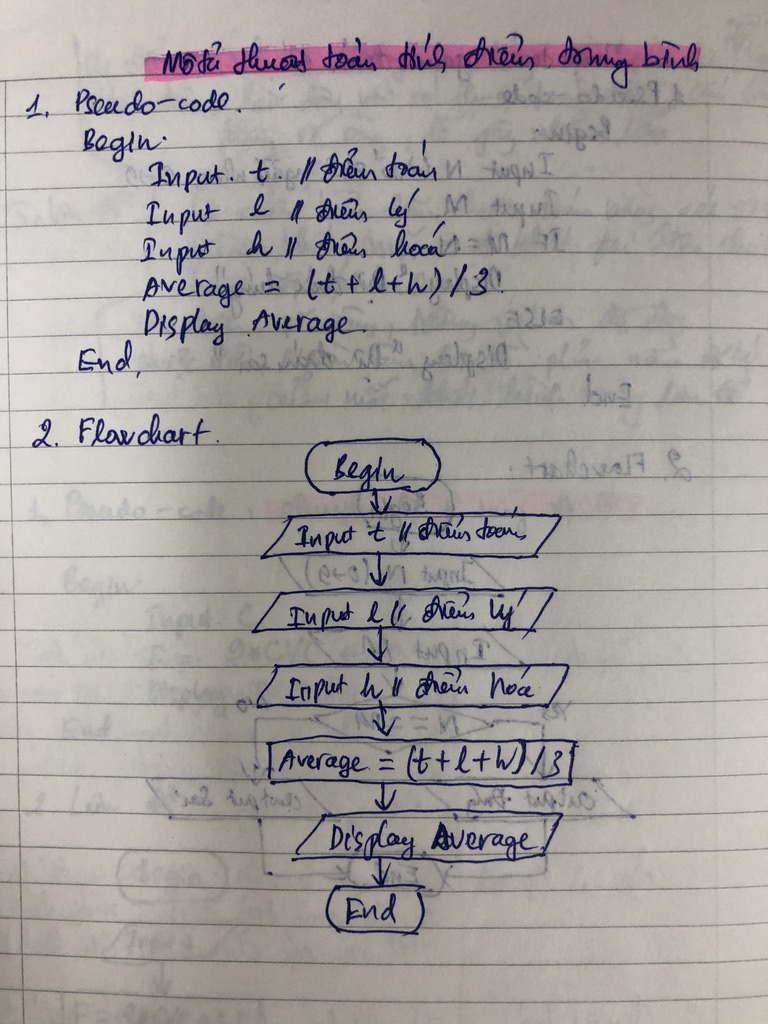 Mô tả thuật toán tính điểm trung bình
1. Pseudo-code.
Begin.
Input t // điểm toán
Input l // điểm lý
Input h // điểm hoá
Average = (t + l + h) / 3
Display Average.
End.
2. Flowchart.
Begin
Input t // điểm toán
Input l // điểm lý
Input h // điểm hoá
Average = (t + l + h) / 3
Display Average
End